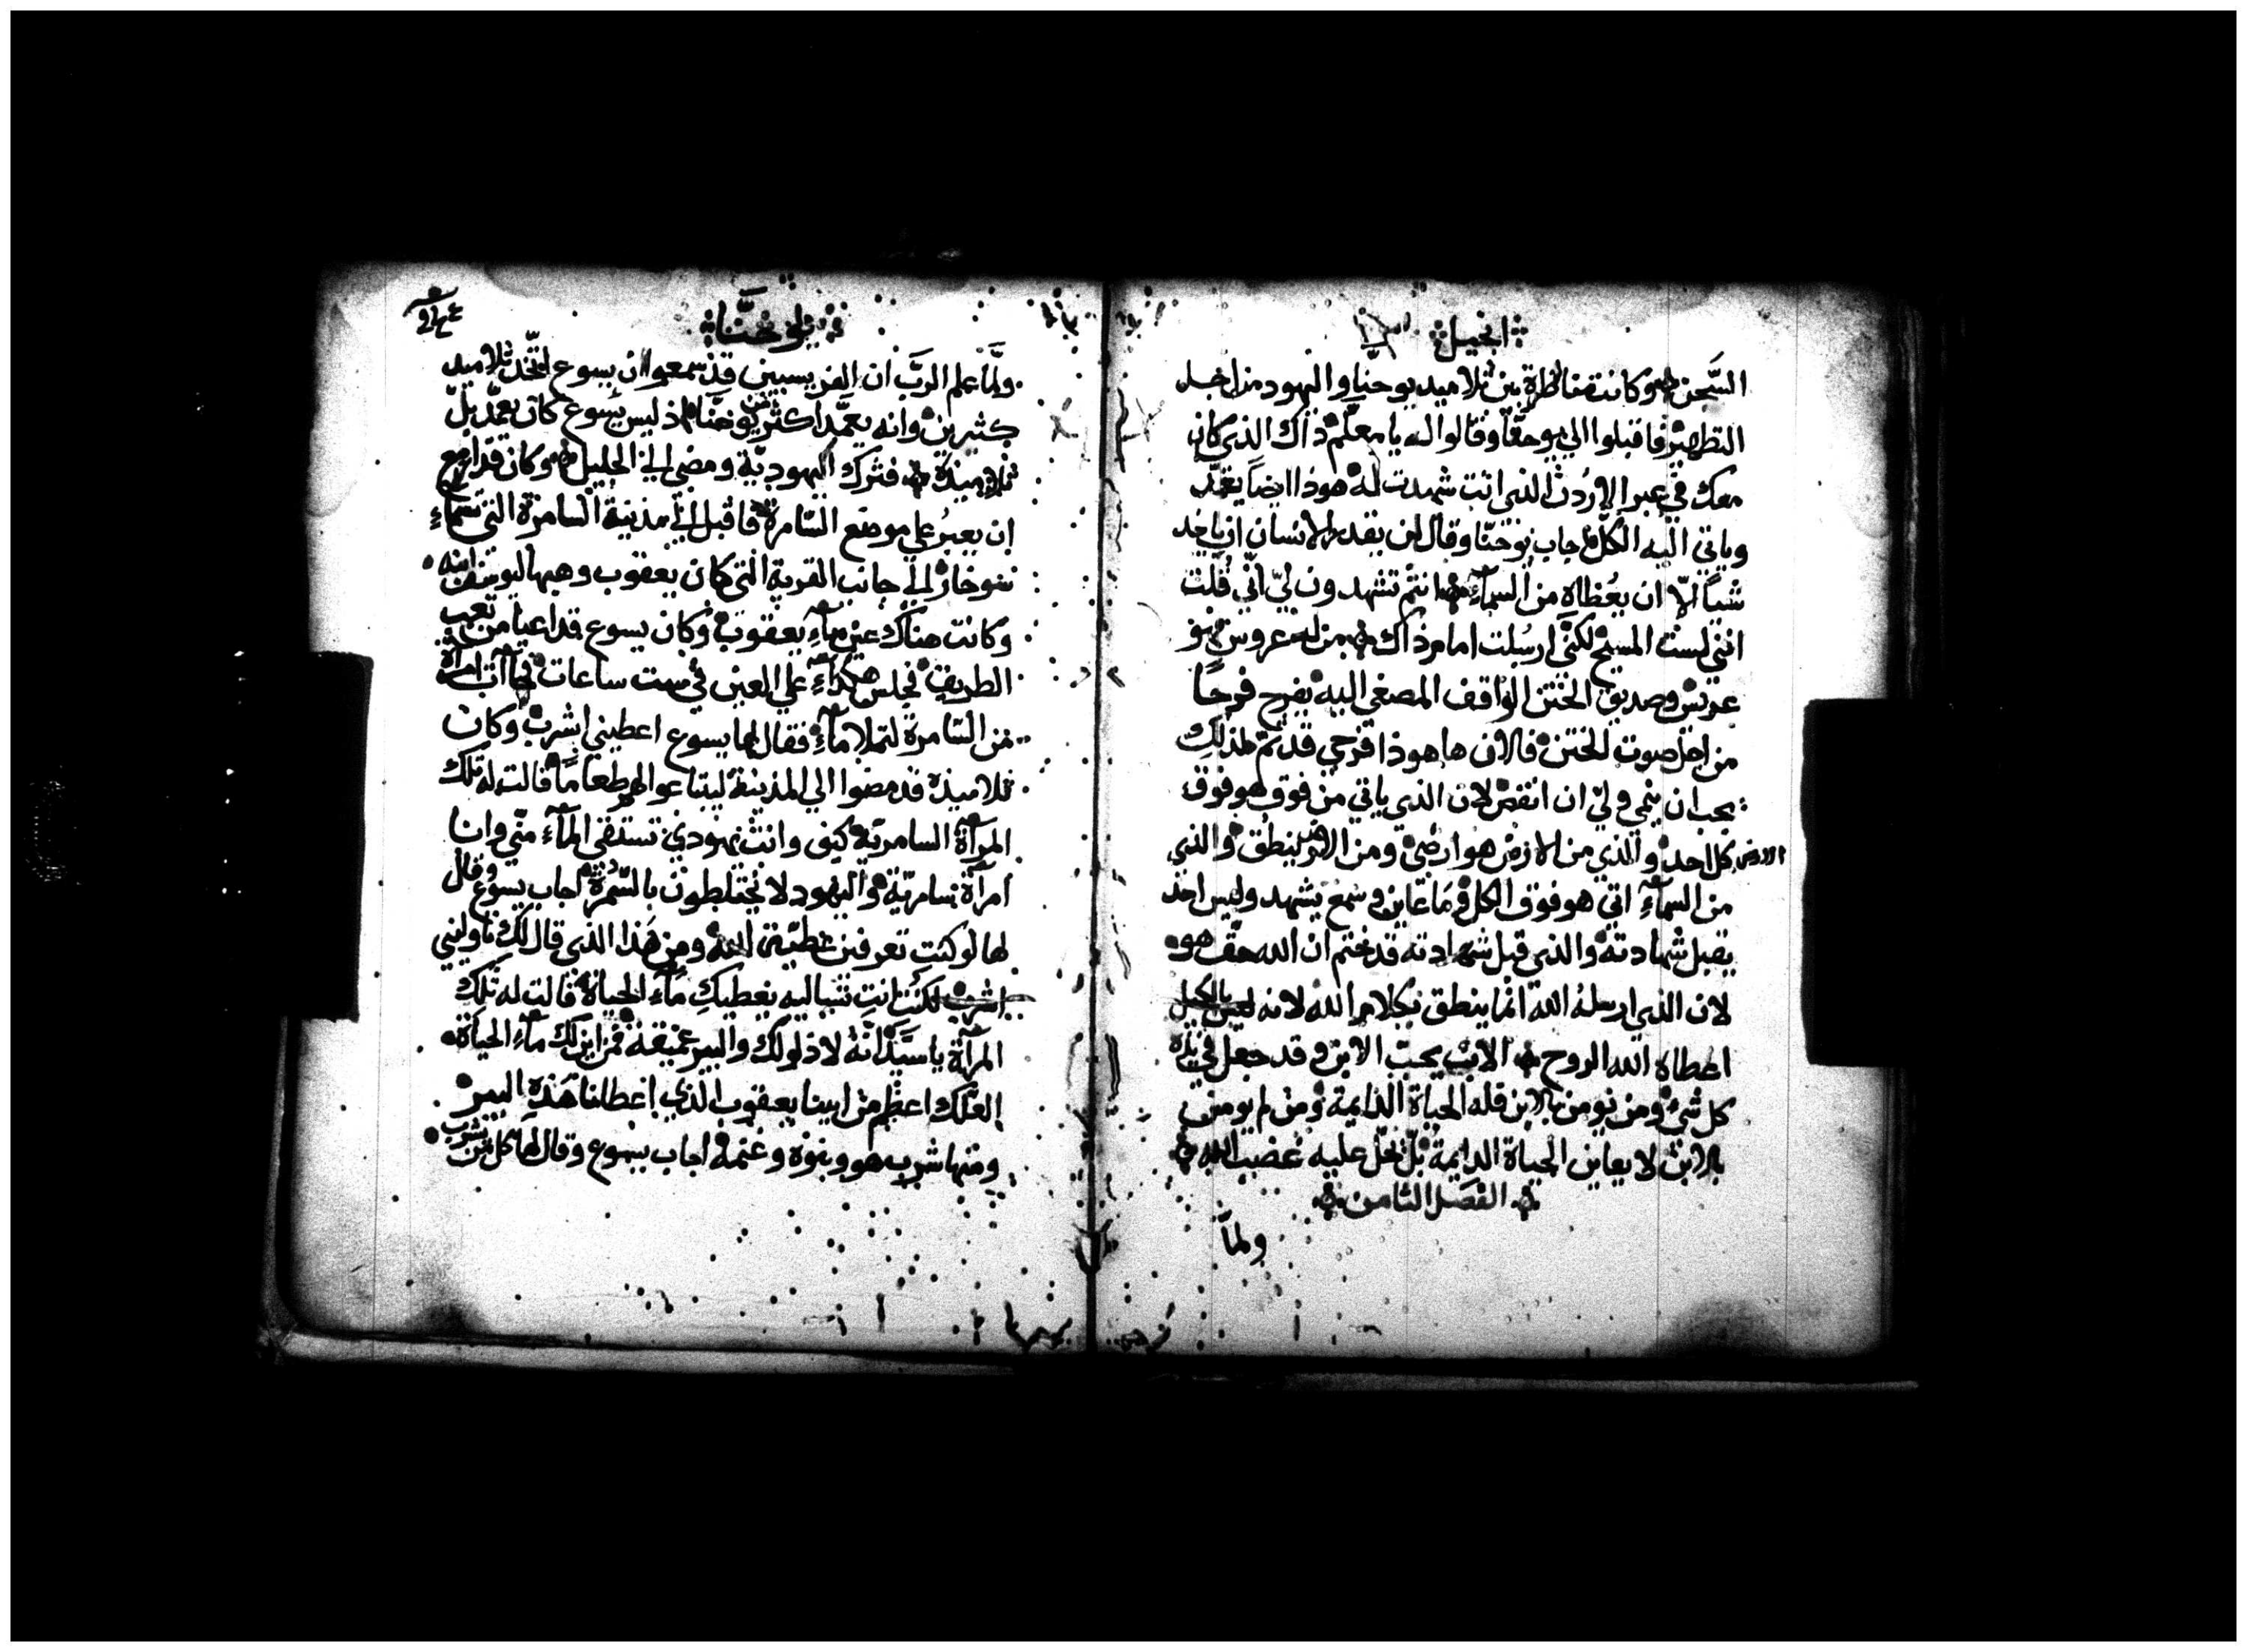 انجيل
السَّجن وكانت مناظرة بين تلاميد يوحنا واليهود من اجل
التطهير فاقبلوا الي يوحنا وقالوا له يا معلّم ذاك الذي كان
معك في عبر الاردن الذي انت شهدت له هوذا ايضاً يعمّد
وياتي اليه الكل اجاب يوحنّا وقال لن يقدر الانسان ان ياخد
شياً الّا ان يعُطاه من السماءِ انتم تشهدون لي انّي قُلت
انني لست المسيح لكنّي ارسُلت امام ذاك من له عروس فهو
عريس وصديق الختن الواقف المصغي اليه يفرح فرحاً
من اجل صوت الختن فالان ها هوذا فرحي قد تمّ لذلك
يجب ان ينمي ولي ان انقص لان الذي ياتي من فوق هو فوق
كل احد والذي من الارض هو ارضي ومن الارض ينطق والذي
من السماءِ اتي هو فوق الكل وما عاين وسمع يشهد وليس احد
يقبل شهادته والذي قبل شهادته قد ختم ان الله حق هو
لان الذي ارسلهُ الله انّما ينطق بكلام الله لانه ليس بالكيل
اعطاه الله الروح الاب يحبّ الابن وقد جعل في يده
كل شيءٍ ومن يومن بالابن فله الحياة الدايمة ومن لم يومن
بالابن لا يعاين الحياة الدايمة بل تحلّ عليه غضب الله
الفصل الثامن
ولمّا
يوحنَّا
ولمَّا علم الربّ ان الفريسيين قد سمعوا ان يسوع اتّخد تلاميد
كثيرين وانه يعمّد اكثر من يوحنّا اذ ليس يسوع كان يعمّد بل
تلاميذه فترك اليهوديّة ومضي الي الجليل وكان قد ازمع
ان يعبُر علي موضع السّامرة فاقبل الي مدينة السامرة التي تسماءِ
سوخار الي جانب القرية التي كان يعقوب وهبها ليوسف ابنه
وكانت هناك عين ماءِ يعقوب وكان يسوع قد اعيا من تعب
الطريق فجلس هكذا علي العين في ست ساعات فجاآت امرأة
من السّامرة لتملا ماءً فقال لها يسوع اعطيني اشرب وكان
تلاميذه قد مضوا الي المدينة ليبتاعوا لهم طعاماً قالت له تلك
المرآة السامريّة كيف وانت يهودي تستقي المآءَ منّي وانا
امرآة سامريّة واليهود لا يختلطون بالسُمرة اجاب يسوع وقال
لها لو كنتِ تعرفين عطيّة الله ومن هذا الذي قال لك ناوليني
اشرب لكنت انتِ تسالیه يعطيكِ مآءَ الحياة قالت له تلك
المرآة يا سيّد انّهُ لا دلو لك والبير عميقة فمن اين لك مآءِ الحياة
العلّك اعظم من ابينا يعقوب الذي اعطانا هذه البير
ومنها شرب هو وبنوه وغنمه اجاب يسوع وقال لها كل من يشرب